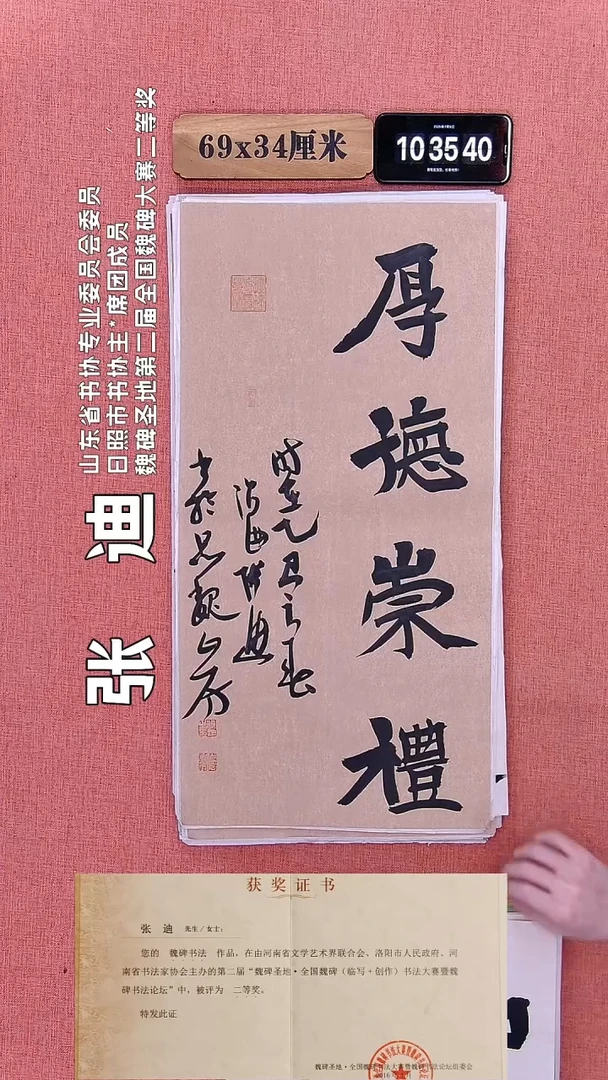 69x34厘米
10 35 40
厚德崇禮
时在乙巳之春
张迪
山东省书协专业委员会委员
日照市书协主*席团成员
魏碑圣地第二届全国魏碑大赛二等奖
张 迪
获奖证书
张 迪 先生/女士：
您的 魏碑书法 作品，在由河南省文学艺术界联合会、洛阳市人民政府、河
南省书法家协会主办的第二届“魏碑圣地·全国魏碑（临写+创作）书法大赛暨魏
碑书法论坛”中，被评为 二等奖。
特发此证
魏碑圣地·全国魏碑书法大赛暨魏碑书法论坛组委会